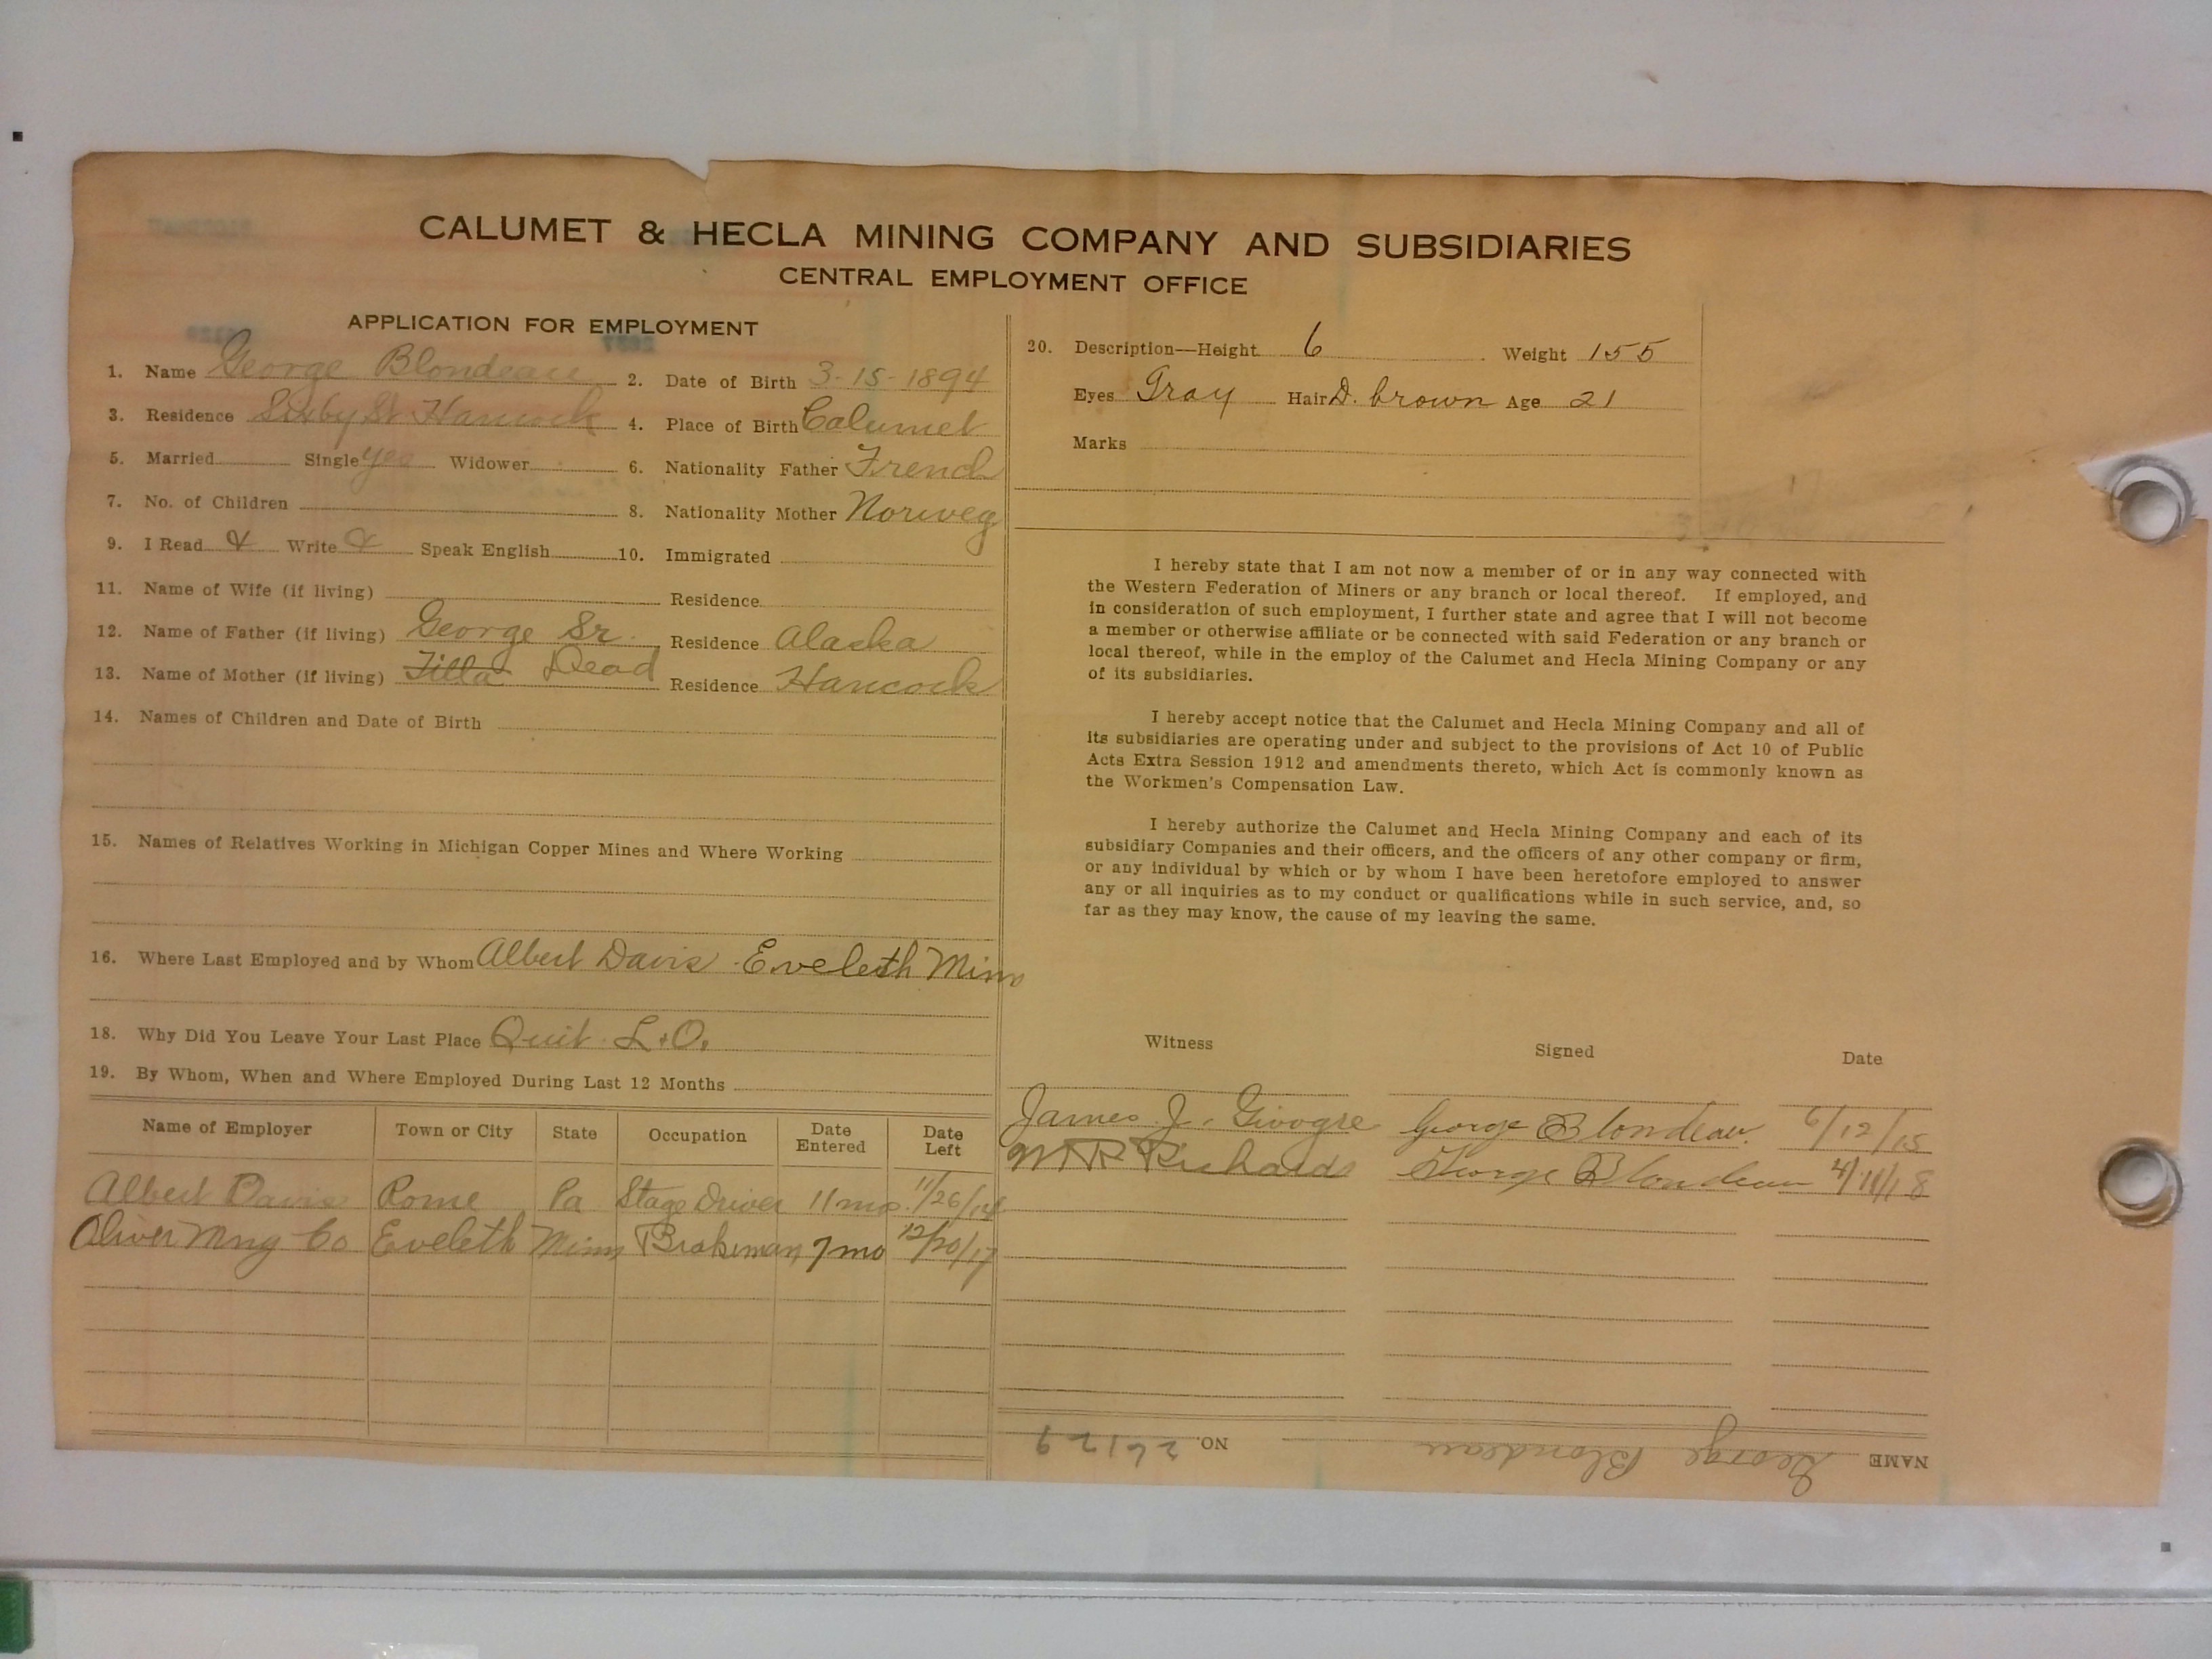 CALUMET & HECLA MINING COMPANY AND SUBSIDIARIES
CENTRAL EMPLOYMENT OFFICE
APPLICATION FOR EMPLOYMENT
1. Name George Blondeau 2. Date of Birth 3-15-1894
3. Residence St Hancock 4. Place of Birth Calumet
5. Married Single yes Widower 6. Nationality Father French
7. No. of Children 8. Nationality Mother Norweg
9. I Read Write Speak English 10. Immigrated
11. Name of Wife (if living) Residence
12. Name of Father (if living) George Sr. Residence Alaska
13. Name of Mother (if living) Tilla Dead Residence Hancock
14. Names of Children and Date of Birth
15. Names of Relatives Working in Michigan Copper Mines and Where Working
16. Where Last Employed and by Whom Albert Davis Eveleth Minn
18. Why Did You Leave Your Last Place Quit L.O.
19. By Whom, When and Where Employed During Last 12 Months
Name of Employer Town or City State Occupation Date Entered Date Left
Albert Davis Rome Pa Stage Driver 11 mo. 11/26/14
Oliver Mng Co Eveleth Minn Brakeman 7 mo 12/20/17
20. Description—Height 6 Weight 155
Eyes Gray Hair D. brown Age 21
Marks
I hereby state that I am not now a member of or in any way connected with
the Western Federation of Miners or any branch or local thereof. If employed, and
in consideration of such employment, I further state and agree that I will not become
a member or otherwise affiliate or be connected with said Federation or any branch or
local thereof, while in the employ of the Calumet and Hecla Mining Company or any
of its subsidiaries.
I hereby accept notice that the Calumet and Hecla Mining Company and all of
its subsidiaries are operating under and subject to the provisions of Act 10 of Public
Acts Extra Session 1912 and amendments thereto, which Act is commonly known as
the Workmen's Compensation Law.
I hereby authorize the Calumet and Hecla Mining Company and each of its
subsidiary Companies and their officers, and the officers of any other company or firm,
or any individual by which or by whom I have been heretofore employed to answer
any or all inquiries as to my conduct or qualifications while in such service, and, so
far as they may know, the cause of my leaving the same.
Witness Signed Date
James J. George Blondeau. 6/12/15
M R Richards George Blondeau 4/11/18
NAME George Blondeau NO. 26129